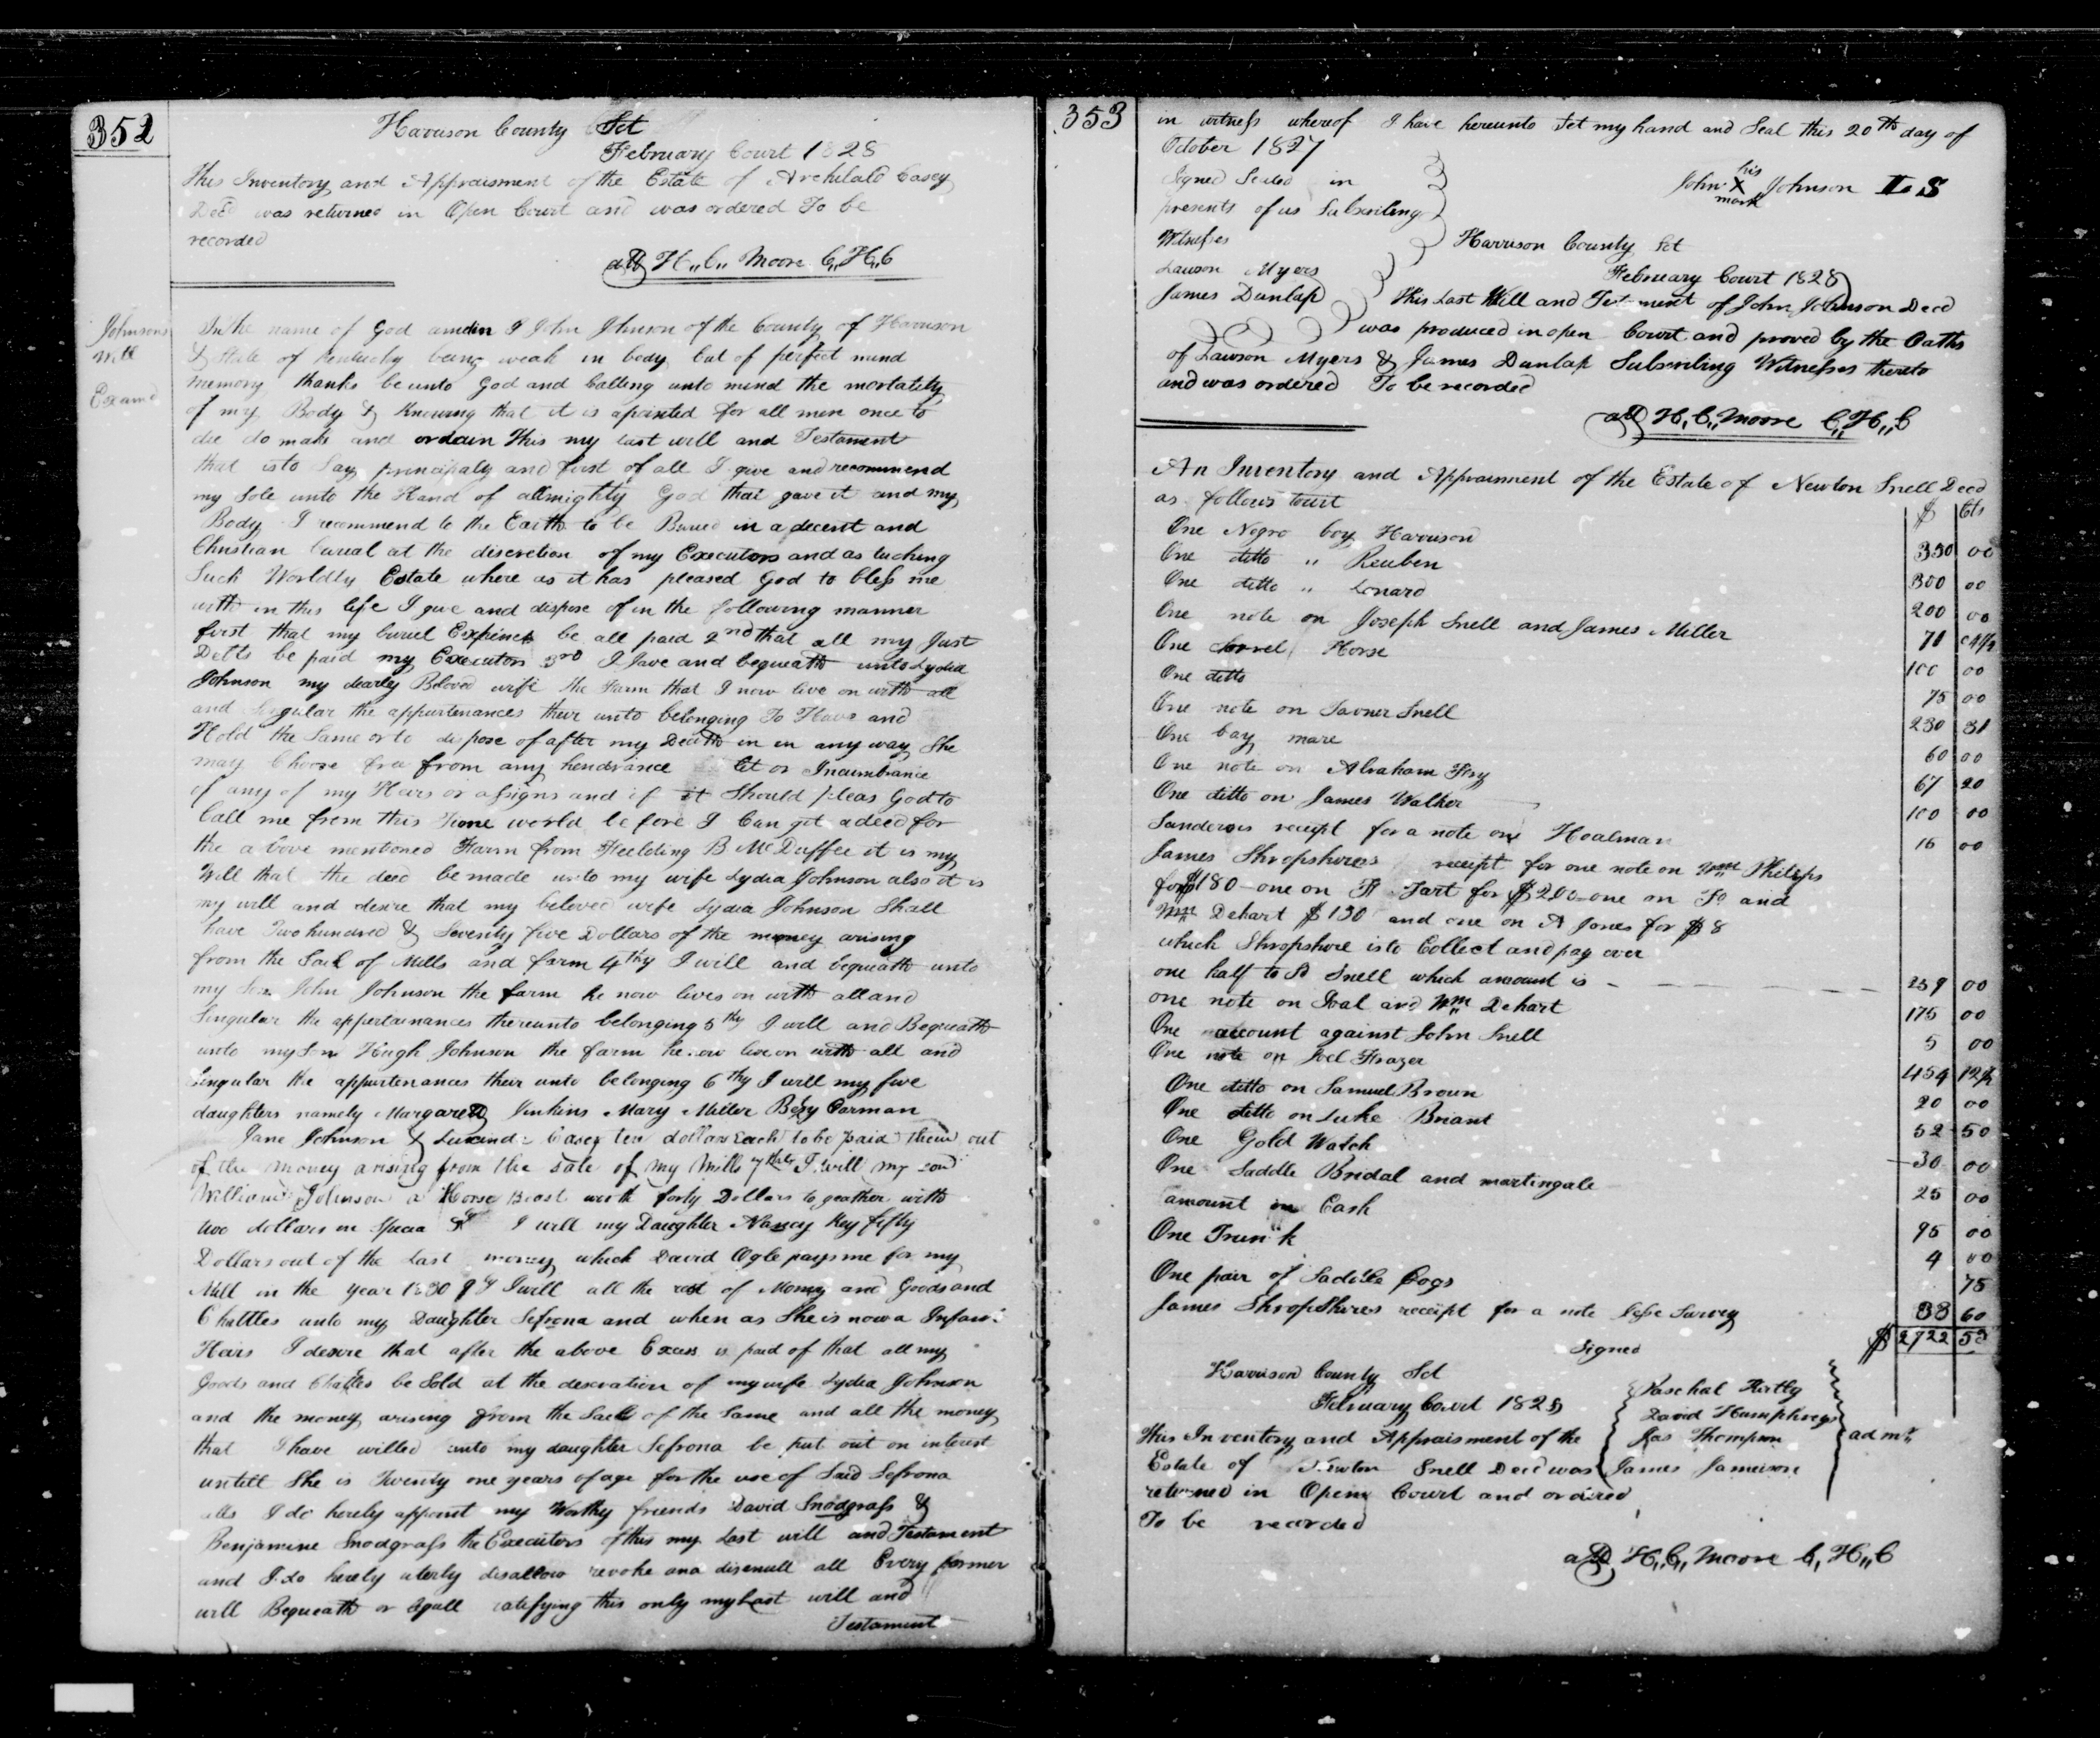 352
Harrison County Sct
February Court 1828
This Inventory and Appraisment of the Estate of Archilald Casey
Decd was returned in Open Court and was ordered To be
recorded
att H,,C,, Moore C,,H,,C
Johnsons
Will
Examd
In the name of God amen I John Johnson of the County of Harrison
& State of Kentucky being weak in body but of perfect mind
memory thanks be unto God and Calling unto mind the mortality
of my Body & Knowing that it is apointed for all men once to
die do make and ordain this my last will and Testament
that is to Say principaly and first of all I give and recommend
my Sole unto the Hand of allmighty God that gave it and my
Body I recommend to the Earth to be Buried in a decent and
Christian burial at the discretion of my Executors and as tuching
Such Worldly Estate where as it has pleased God to bless me
with in this life I give and dispose of in the following manner
first that my buriel Expinces be all paid 2nd that all my Just
Detts be paid my Executors 3rd I Jave and bequeath unto Lydia
Johnson my dearly Beloved wife the Farm that I now live on with all
and Singular the appurtenances their unto belonging To Have and
Hold the Same or to dispose of after my Death in in any way She
may Choose free from any hendrance let or Incumbrance
of any of my Heirs or assigns and if it Should pleas God to
Call me from this world before I Can git a deed for
the above mentioned Farm from Feelding B McDuffee it is my
Will that the deed be made unto my wife Lydia Johnson also it is
my will and desire that my beloved wife Lydia Johnson Shall
have Two hundred & Seventy five Dollars of the money arising
from the Sail of Mills and farm 4thy I will and bequeath unto
my Son John Johnson the farm he now lives on with all and
Singular the appertainances thereunto belonging 5thy I will and Bequeath
unto my Son Hugh Johnson the farm he now live on with all and
Singular the appurtenances their unto belonging 6thy I will my five
daughters namely Margarett Jenkins Mary Miller Betsy Carman
Jane Johnson & Lucinda Casey ten dollars each to be paid them out
of the money arising from the sale of my Mills 7thly I will my son
William Johnson a Horse Beast worth forty Dollars to geather with
two dollars in Specia 8th I will my Daughter Nancy Key fifty
Dollars out of the Last money which David Ogle pays me for my
Mill in the year 1830 9th I will all the rest of Money and Goods and
Chattles unto my Daughter Sefrona and when as She is now a Infant
Heirs I desire that after the above Excess is paid of that all my
Goods and Chattles be Sold at the descration of my wife Lydia Johnson
and the money arising from the Sail of the Same and all the money
that I have willed unto my daughter Sefrona be put out on interest
untill She is Twenty one years of age for the use of Said Sefrona
alls I do hereby appoint my Worthy friends David Snodgrass &
Benjamine Snodgrass the Executors of this my Last will and Testament
and I do hereby uterly disallow revoke and disenull all Every former
will Bequeath or Legall ratifying this only my Last will and
Testament
353
in witness whereof I have hereunto Set my hand and Seal this 20th day of
October 1827
Signed Sealed in
presents of us Subscribing
Witnesses
Lawson Myers
James Dunlap
his
John X Johnson L S
mark
Harrison County Sct
February Court 1828
This Last Will and Testament of John Johnson Decd
was produced in open Court and proved by the Oaths
of Lawson Myers & James Dunlap Subscribing Witnesses thereto
and was ordered To be recorded
att H,C,, Moore C,,H,,C
An Inventory and Appraisment of the Estate of Newton Snell Decd
as follows towit
$ Cts
One Negro boy Harrison 350 00
One ditto ,, Reuben 300 00
One ditto ,, Lonard 200 00
One note on Joseph Snell and James Miller 71
One Sorrel Horse 100 00
One ditto 75 00
One note on Snell 230 31
One bay mare 60 00
One note on Abraham Fry 67 20
One ditto on James Walker 100 00
Sanderses receipt for a note on Hoalman 16 00
James Shropshires receipt for one note on Wm Philips
for $180 - one on Tart for $200 - one on and
Wm Dehart $130 and one on A Jones for $8
which Shropshire is to Collect and pay over
one half to Sd Snell which amount is 259 00
one note on and Wm Dehart 175 00
One account against John Snell 5 00
One note on Joel Frazer 454 12½
One ditto on Samuel Brown 20 00
One ditto on Luke Briant 52 50
One Gold Watch 30 00
One Saddle Bridal and martingale 25 00
amount in Cash 95 00
One Trunk 4 00
One pair of Saddle Bags 75
James ShropShires receipt for a note Survey 38 60
$ 2722 53
Signed
Paschal Kirtly
David Humphreys
Jas Thompson
James Jameison
admr
Harrison County Sct
February Court 1828
This Inventory and Appraisment of the
Estate of Newton Snell Decd was
returned in Open Court and ordered
To be recorded
att H,,C,, Moore C,,H,,C